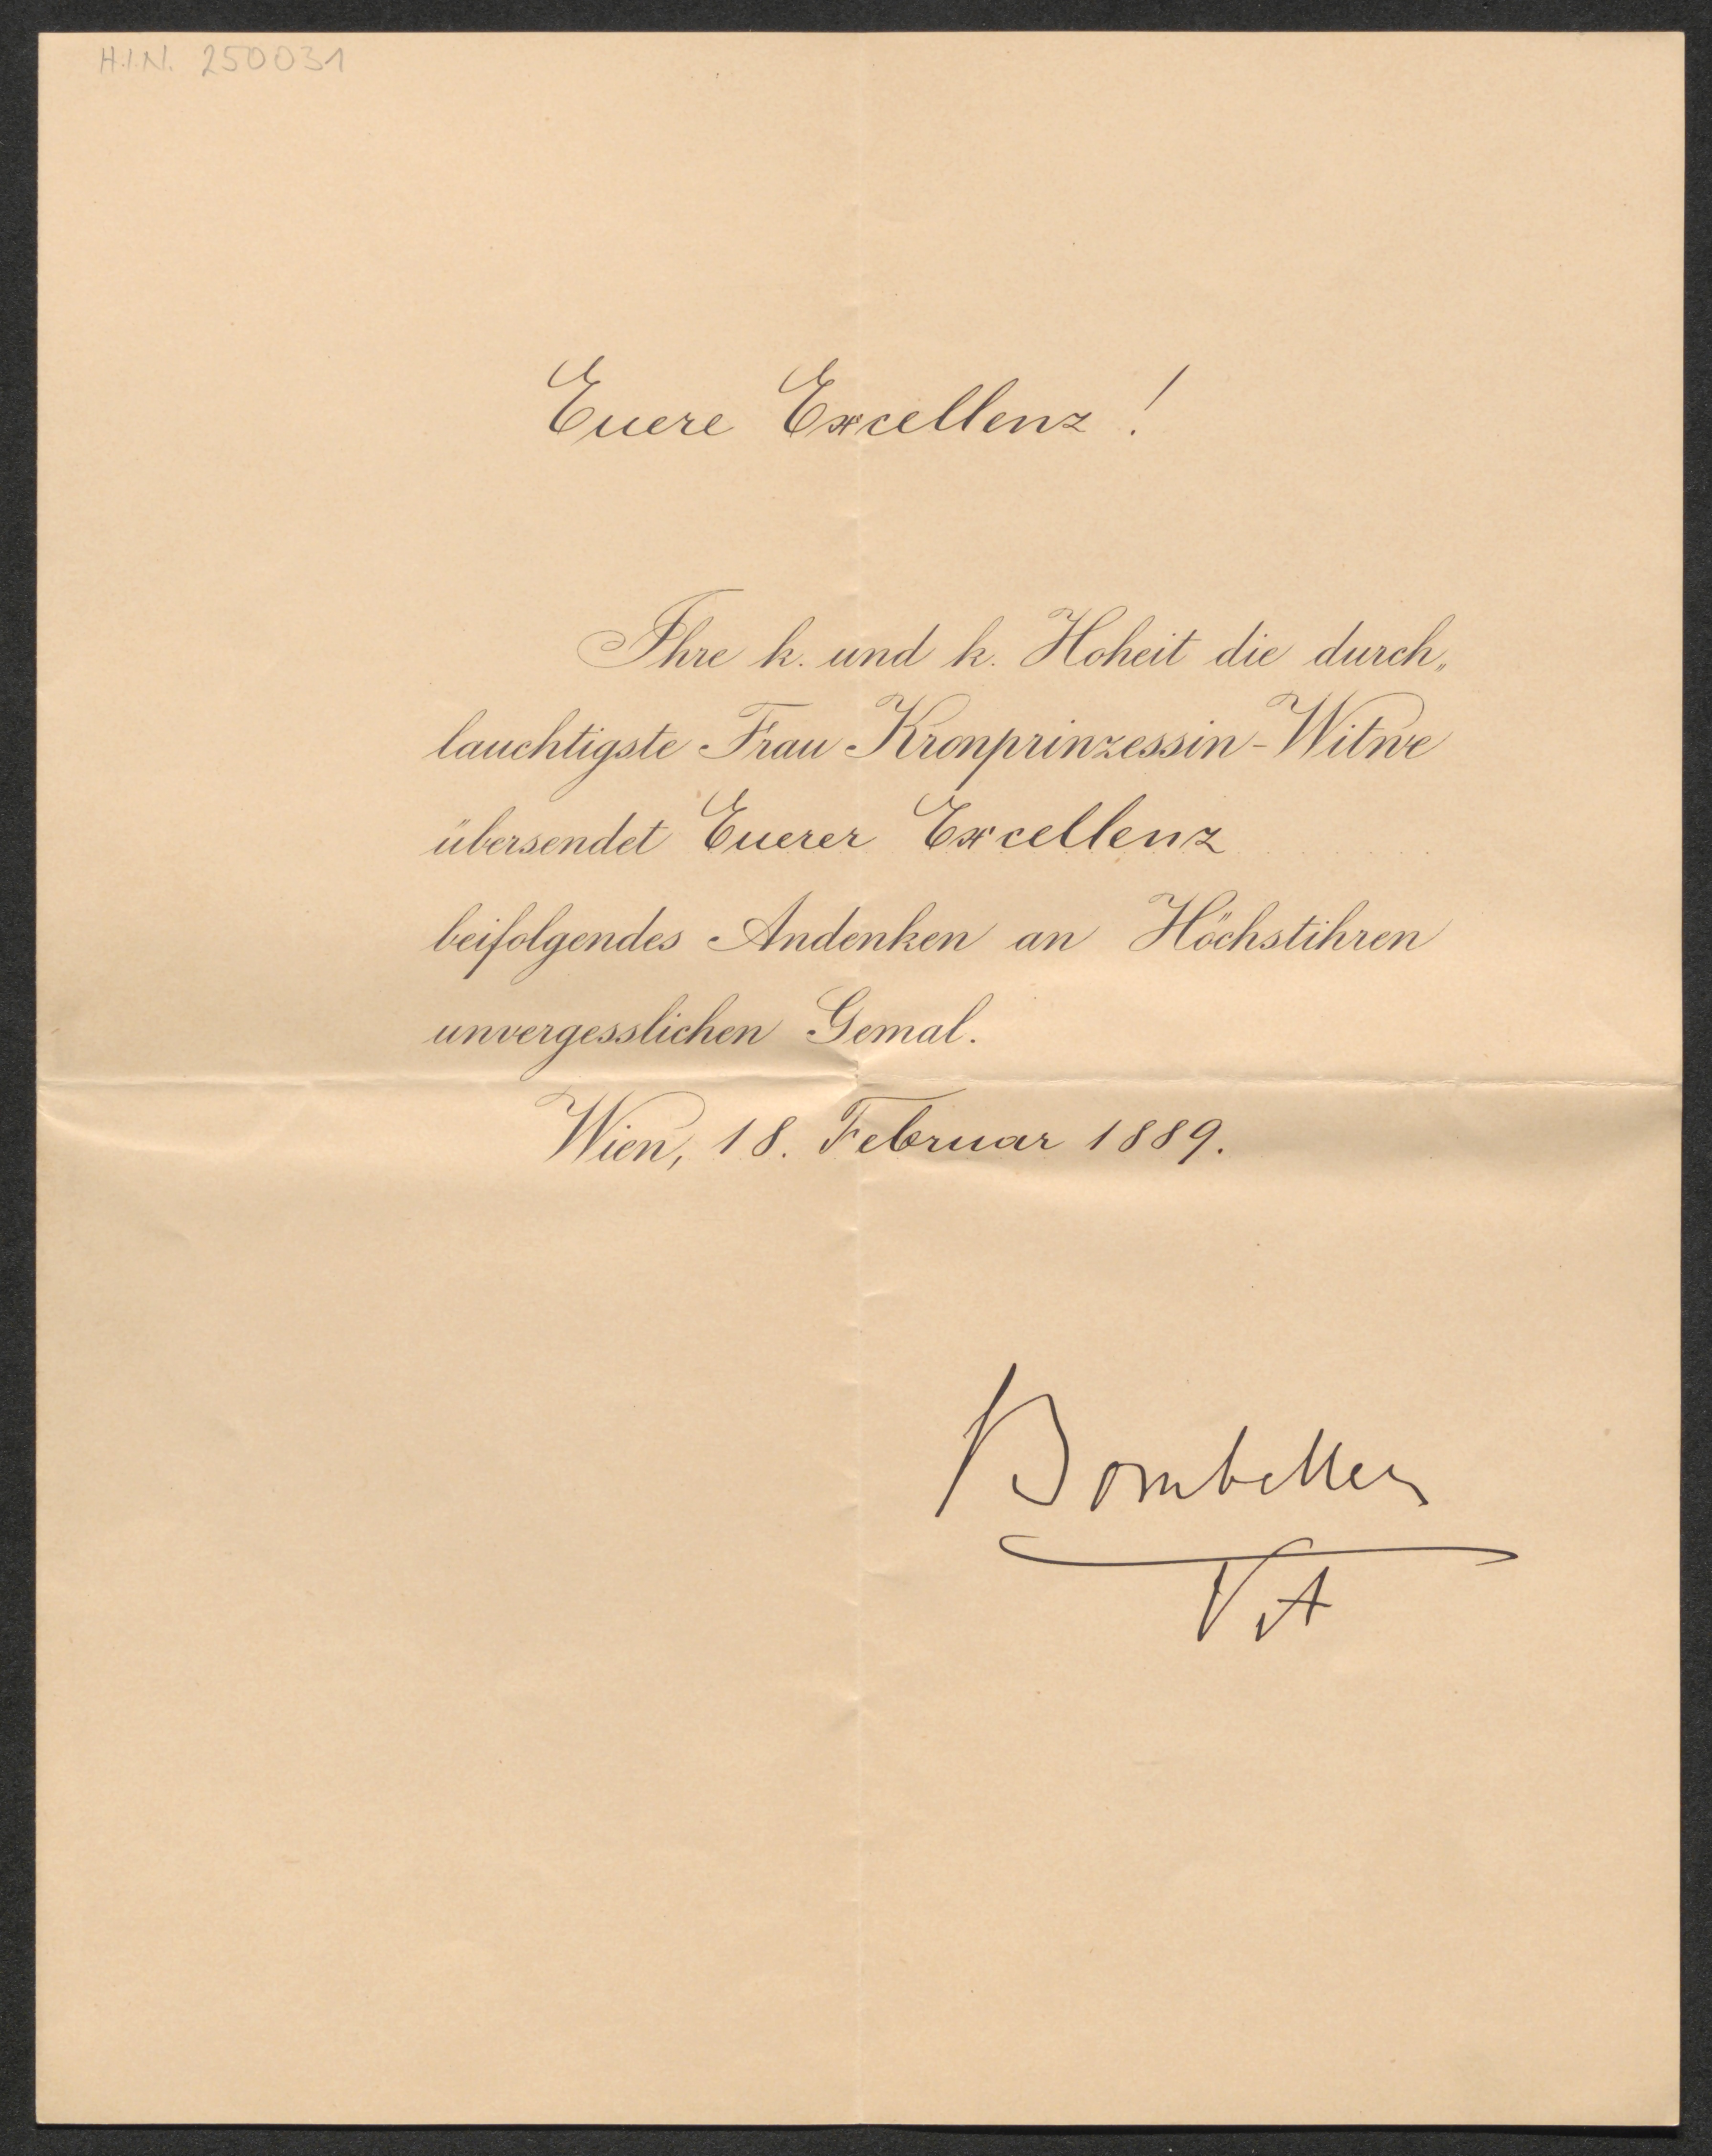 H.I.N. 250031
Euere Excellenz!
Ihre k. und k. Hoheit die durch„
lauchtigste Frau Kronprinzessin-Witwe
übersendet Euerer Excellenz
beifolgendes Andenken an Höchstihren
unvergesslichen Gemal.
Wien, 18. Februar 1889.
Bombelles
VA